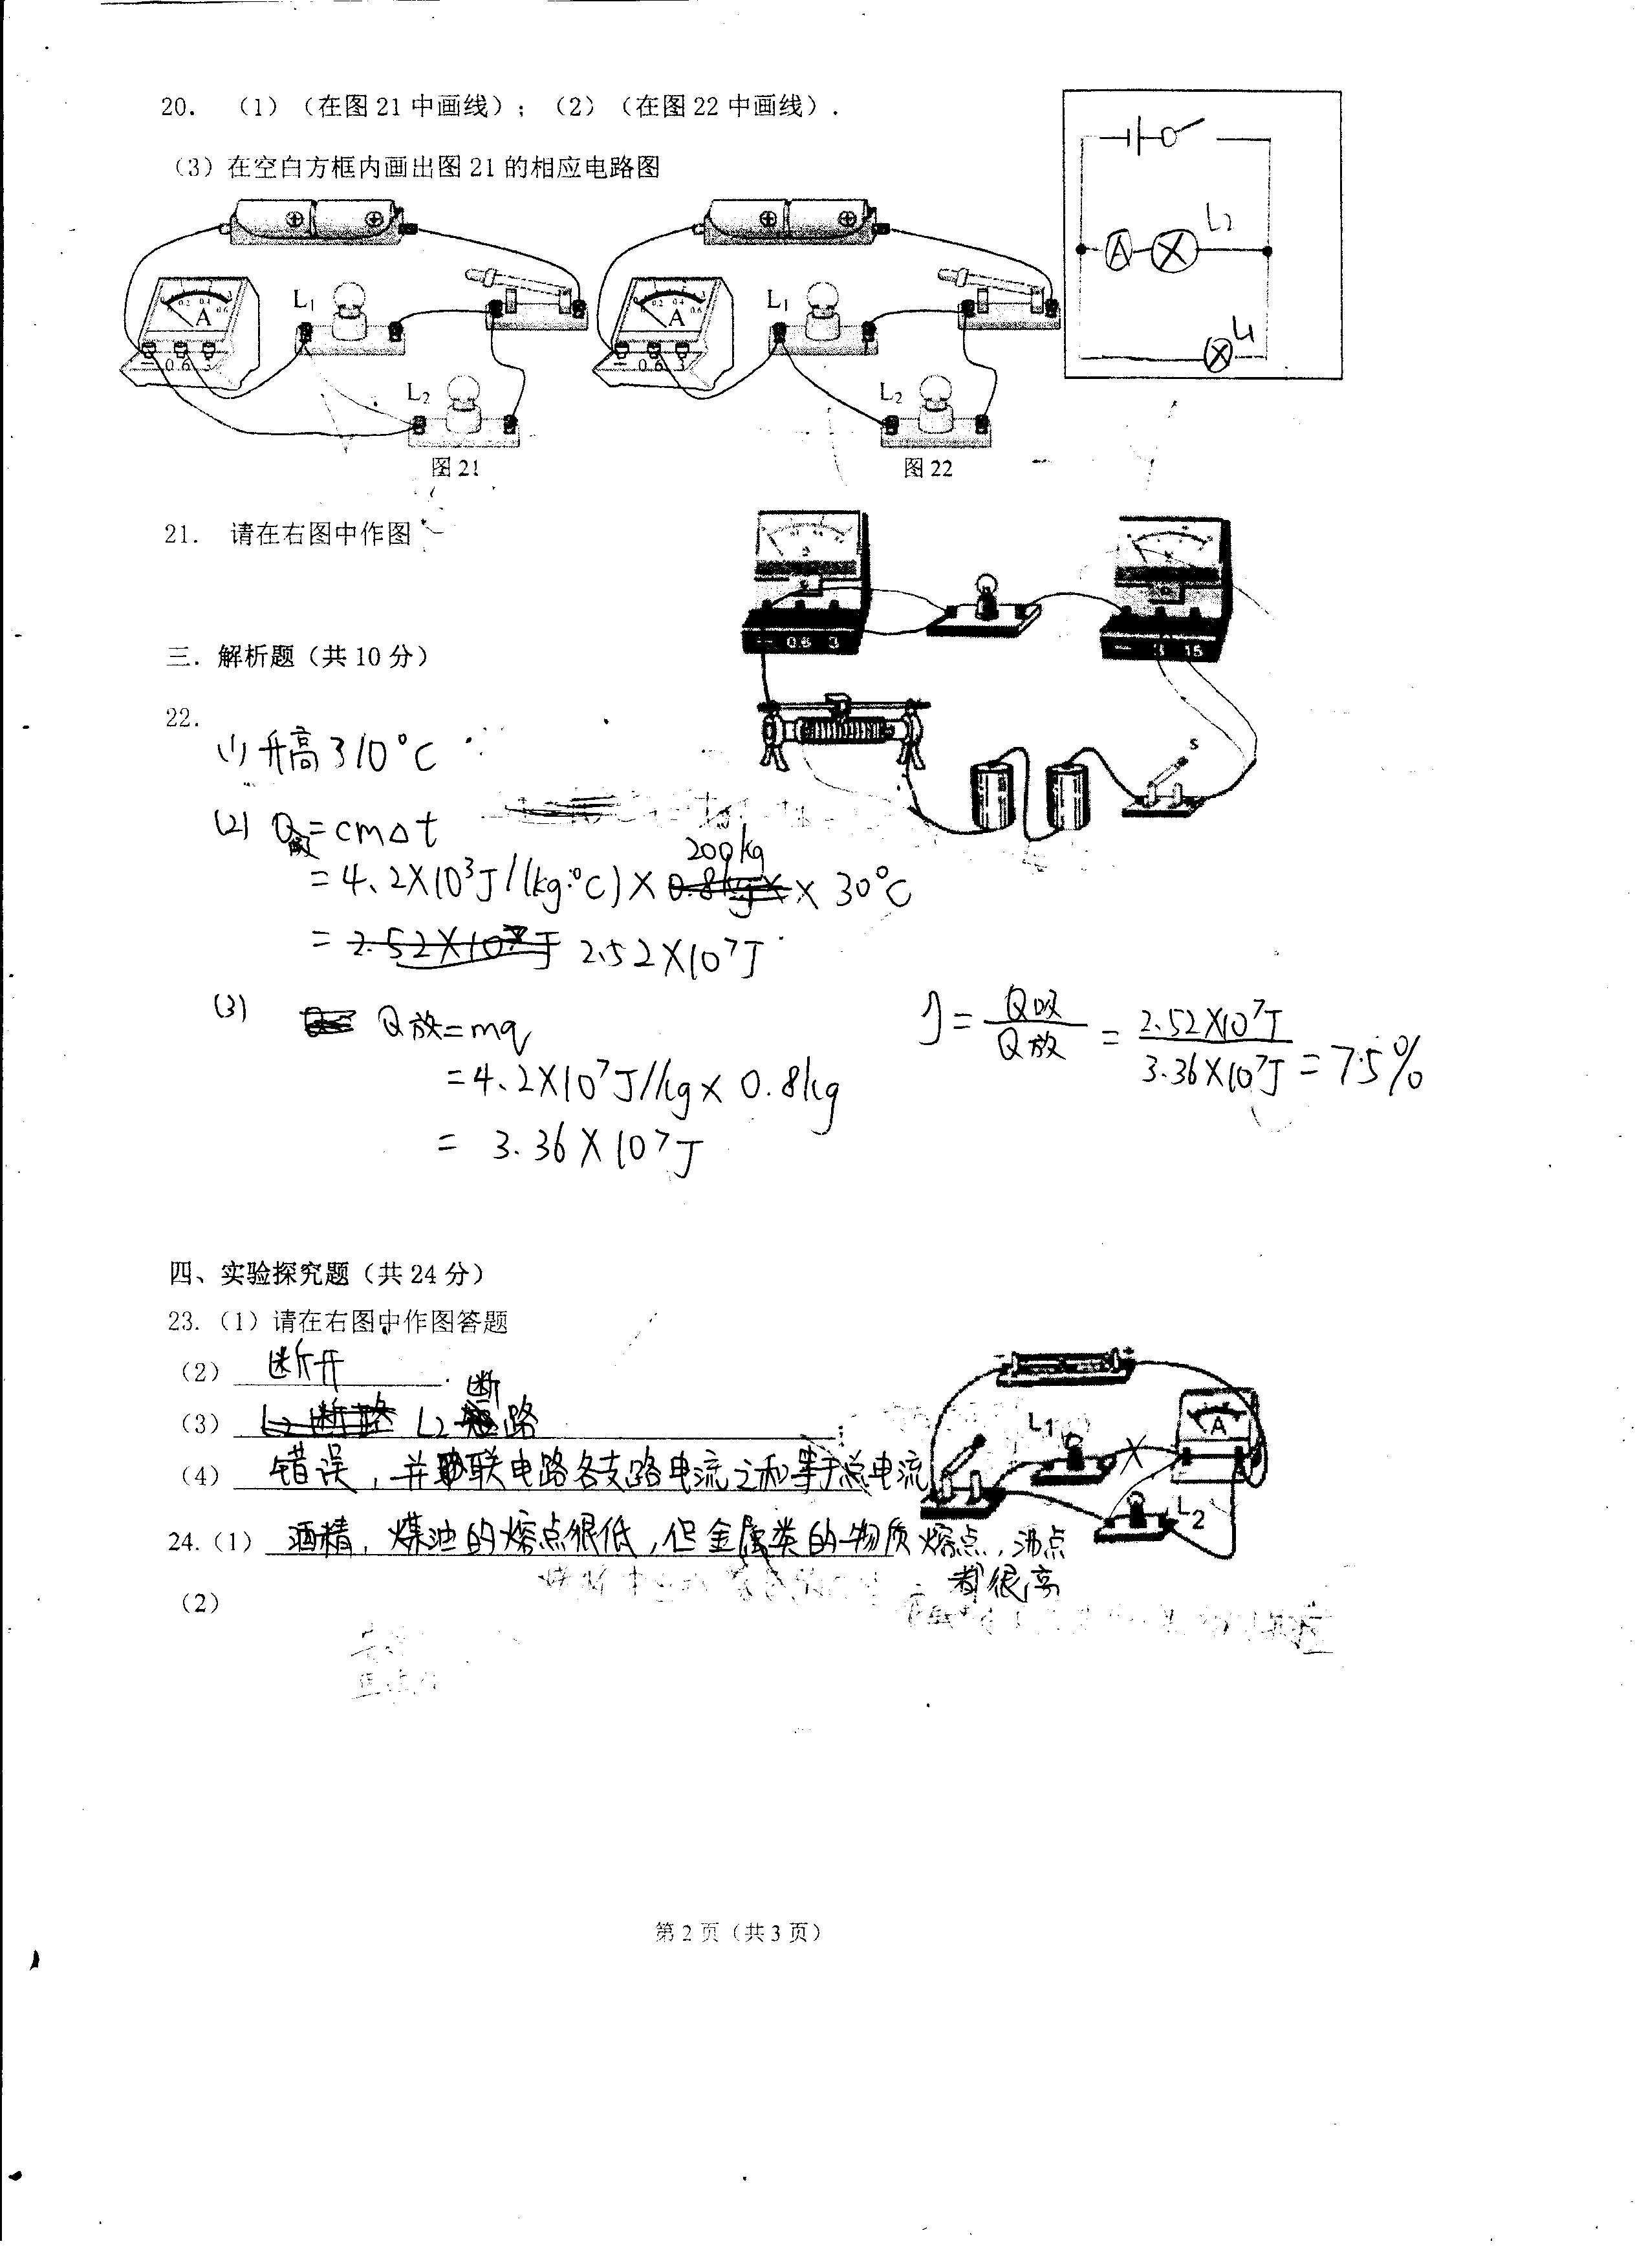 20. (1)(在图21中画线);(2)(在图22中画线).
(3)在空白方框内画出图21的相应电路图
L2
A
L1
A
L1
A
L2
L2
L1
- 0.6 3
- 0.6 3
图21
图22
21. 请在右图中作图
- 0.6 3
- 3 15
三. 解析题(共10分)
22.
(1) 升高310°C
S
(2) Q=cm△t
200kg
=4.2×10³J/(kg·°C)××30°C
=2.52×10⁷J
(3) Q放=mq
=4.2×10⁷J/kg×0.8kg
=3.36×10⁷J
η=Q吸/Q放=2.52×10⁷J/3.36×10⁷J=75%
四、实验探究题(共24分)
23.(1)请在右图中作图答题
(2) 断开
(3) L2断路
(4) 错误,并联电路各支路电流之和等于总电流
L1
A
L2
24.(1) 酒精,煤油的熔点很低,但金属类的物质熔点,沸点
都很高
(2)
第2页(共3页)